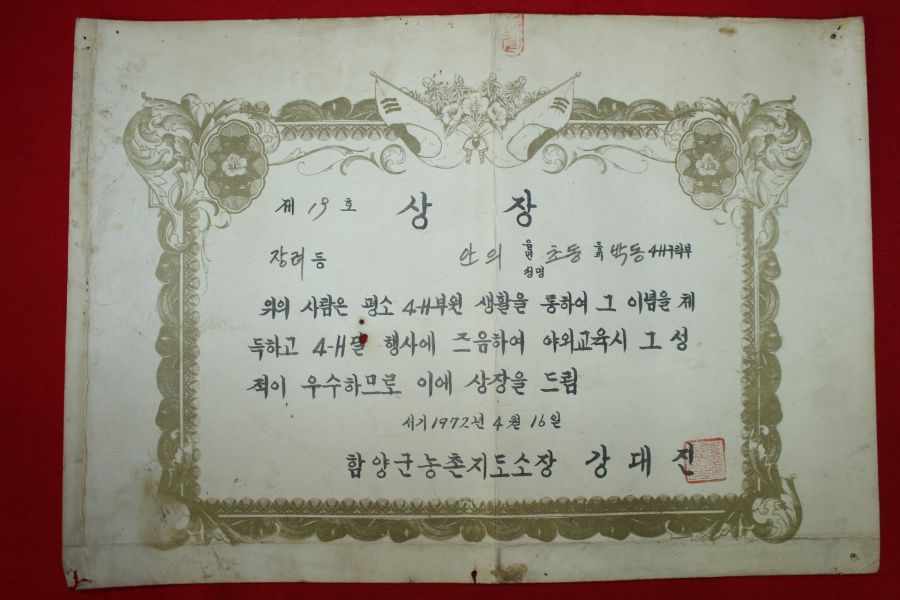 제 19 호 상 장
장려 등 안의 읍면 초동 동리 박동 4-H구락부
성명
위의 사람은 평소 4-H부원 생활을 통하여 그 이념을 체
득하고 4-H달 행사에 즈음하여 야외교육시 그 성
적이 우수하므로 이에 상장을 드림
서기 1972년 4월 16일
함양군농촌지도소장 강대진